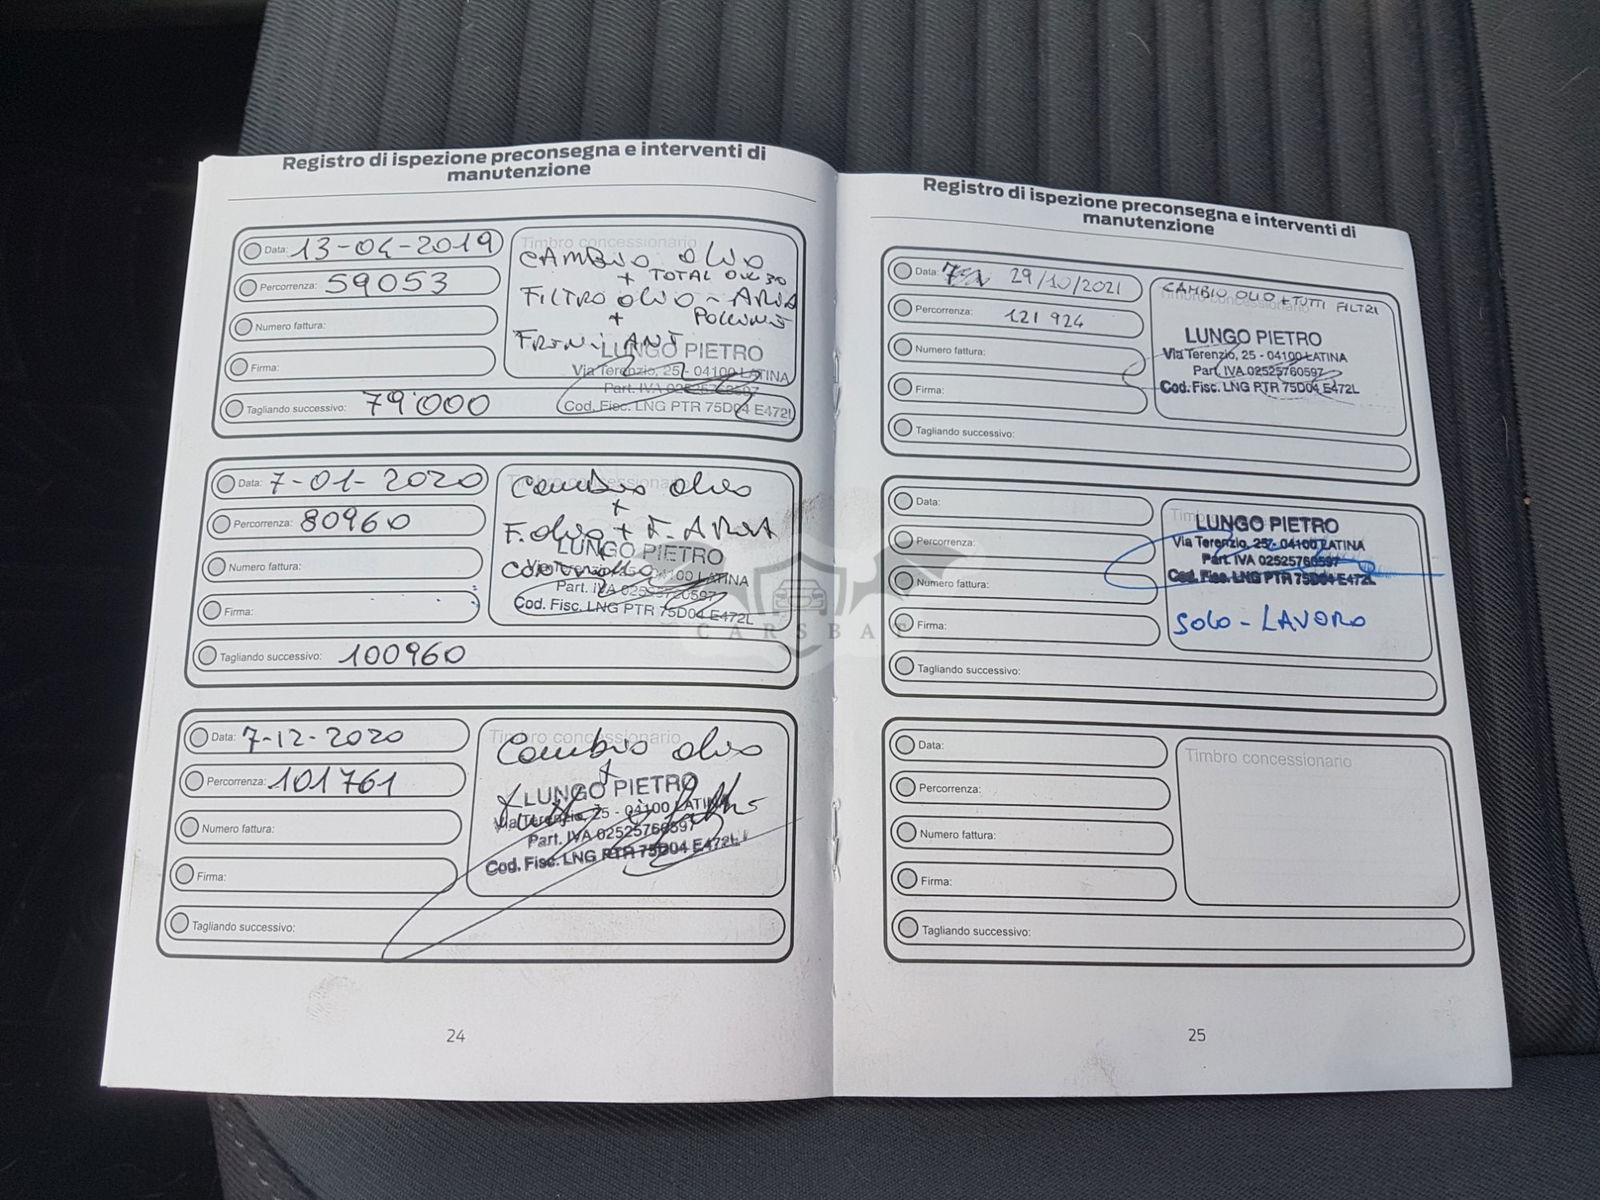 Registro di ispezione preconsegna e interventi di
manutenzione
Data: 13-04-2019
Percorrenza: 59053
Numero fattura:
Firma:
Tagliando successivo: 79'000
Timbro concessionario
CAMBIO OLIO
+ TOTAL
FILTRO OLIO - ARIA
+
LUNGO PIETRO
Via Terenzio, 25 - 04100 LATINA
Part. IVA 02525760597
Cod. Fisc. LNG PTR 75D04 E472L
Data: 7-01-2020
Percorrenza: 80960
Numero fattura:
Firma:
Tagliando successivo: 100960
Cambio olio
+
F. olio + F. ARIA
LUNGO PIETRO
04100 LATINA
Part. IVA 02525760597
Cod. Fisc. LNG PTR 75D04 E472L
Data: 7-12-2020
Percorrenza: 101761
Numero fattura:
Firma:
Tagliando successivo:
Timbro concessionario
Cambio olio
+
LUNGO PIETRO
Via Terenzio, 25 - 04100 LATINA
Part. IVA 02525760597
Cod. Fisc. LNG PTR 75D04 E472L
24
Registro di ispezione preconsegna e interventi di
manutenzione
Data: 29/10/2021
Percorrenza: 121 924
Numero fattura:
Firma:
Tagliando successivo:
Timbro concessionario
CAMBIO OLIO + TUTTI FILTRI
LUNGO PIETRO
Via Terenzio, 25 - 04100 LATINA
Part. IVA 02525760597
Cod. Fisc. LNG PTR 75D04 E472L
Data:
Percorrenza:
Numero fattura:
Firma:
Tagliando successivo:
LUNGO PIETRO
Via Terenzio, 25 - 04100 LATINA
Part. IVA 02525760597
Cod. Fisc. LNG PTR 75D04 E472L
SOLO - LAVORO
Data:
Percorrenza:
Numero fattura:
Firma:
Tagliando successivo:
Timbro concessionario
25